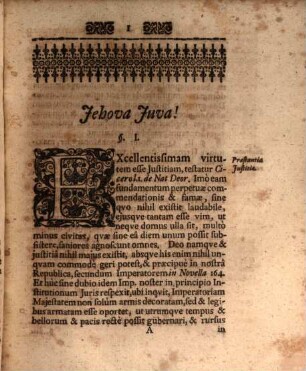 1
Jehova Juva!
§. I.
EXcellentissimam virtu-
tem esse Justitiam, testatur Ci-
cero l. 2. de Nat Deor. Imò eam
fundamentum perpetuæ com-
mendationis & famæ, sine
quo nihil existit laudabile,
ejusque tantam esse vim, ut
neque domus ulla sit, multò
minus civitas, quæ sine ea diem unum possit sub-
sistere, saniores agnoscunt omnes. Deo namque &
justitiâ nihil majus existit, absque his enim nihil un-
quam commodè geri potest, & præcipuè in nostrâ
Republica, secundum Imperatorem in Novella 164.
Et huc sine dubio idem Imp. noster in principio In-
stitutionum Juris respexit, ubi inquit, Imperatoriam
Majestatem non solùm armis decoratam, sed & legi-
bus armatam esse oportet, ut utrumque tempus &
bellorum & pacis rectè possit gubernari, & rursus
A in
Præstantia
Justitiæ.